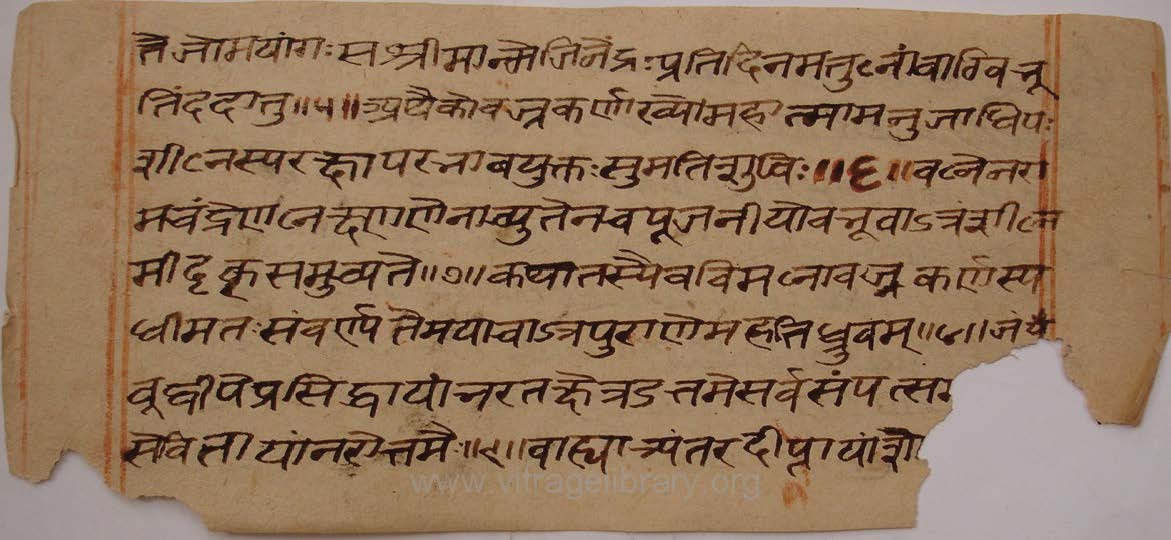 तेजोमयांगः सश्रीमान्मेजिनेंद्रः प्रतिदिनमतुलां वाग्विभू
तिं ददातु ॥५॥ अथैको वज्रकर्णाख्यो महात्मा मनुजाधिपः
शीलेस्परक्षापरभावयुक्तः सुमतिशुचिः ॥६॥ बलेनरा
मचंद्रेण लक्ष्मणेनाच्युतेन च पूजनीयो बभूवाऽत्र शीले
मीदृक् समुच्यते ॥७॥ कथा तस्यैव विमलो वज्रकर्णस्य
धीमतः संवर्ण्यते मया चाऽत्र पुराणे महति ध्रुवम् ॥८॥ जंबू
बूद्वीपे प्रसिद्धायां भरतक्षेत्रउत्तमे सर्वसंपत्स
सेवितायां नरोत्तमैः ॥९॥ बाह्याभ्यंतरदीपायां
www.vitragelibrary.org